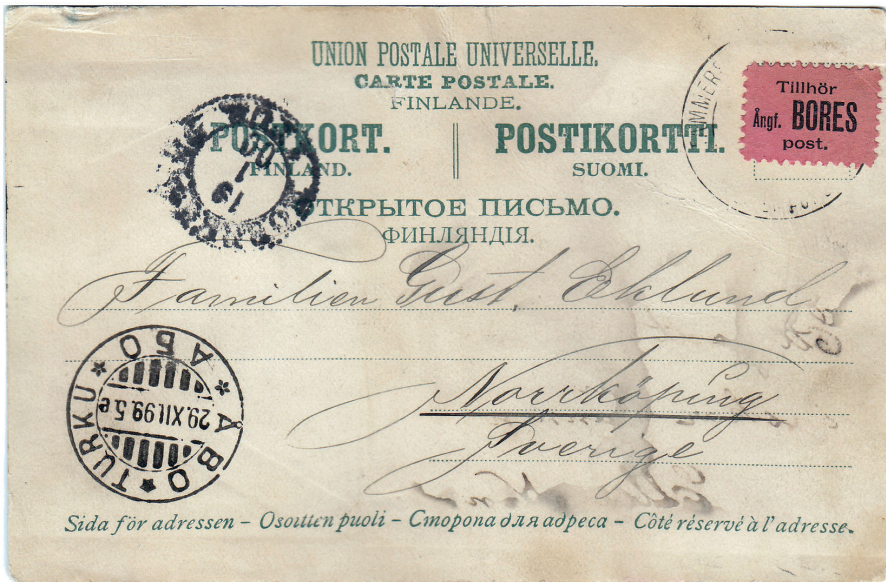 UNION POSTALE UNIVERSELLE.
CARTE POSTALE.
FINLANDE.
POSTKORT. POSTIKORTTI.
FINLAND. SUOMI.
ОТКРЫТОЕ ПИСЬМО.
ФИНЛЯНДІЯ.
Tillhör
Ångf. BORES
post.
1900
19
1
Familien Gust. Eklund
Norrköping
Sverige
ÅBO * TURKU * АБО *
29.XII.99.5e
Sida för adressen – Osoitteen puoli – Сторона для адреса – Côté réservé à l'adresse.